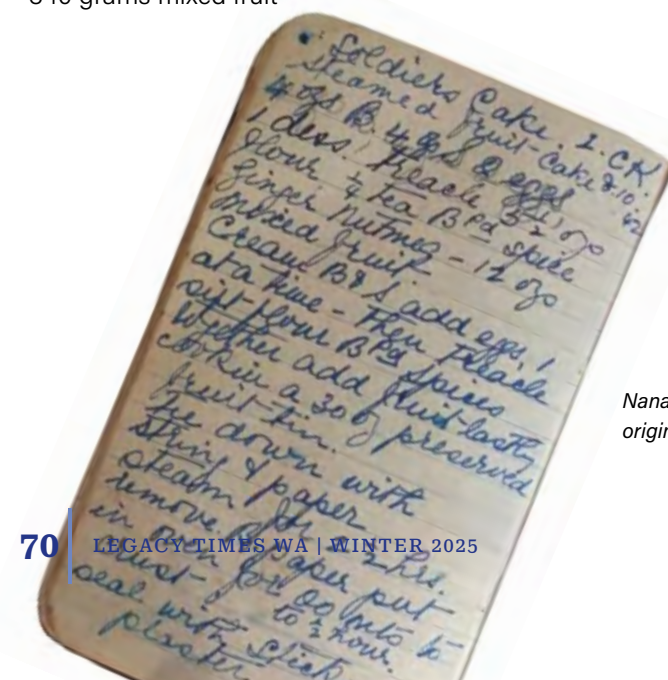 340 grams mixed fruit
Soldiers Cake. I.C.K.
Steamed Fruit-Cake 8.10.62
4 ozs B. 4 oz S 2 eggs
1 dess. Treacle 5½ ozs
flour ¼ tea B Pd Spice
Ginger Nutmeg - 12 ozs
Mixed Fruit
Cream B & S add eggs 1
at a time - then Treacle
sift flour B Pd Spices
together add fruit lastly
cook in a 30 oz preserved
fruit-tin.
tie down with
string & paper
steam for 2½ hrs.
remove paper put
in oven for 20 mts to
to ½ hour.
seal with Stick
plaster
Nana
origin
70 LEGACY TIMES WA | WINTER 2025